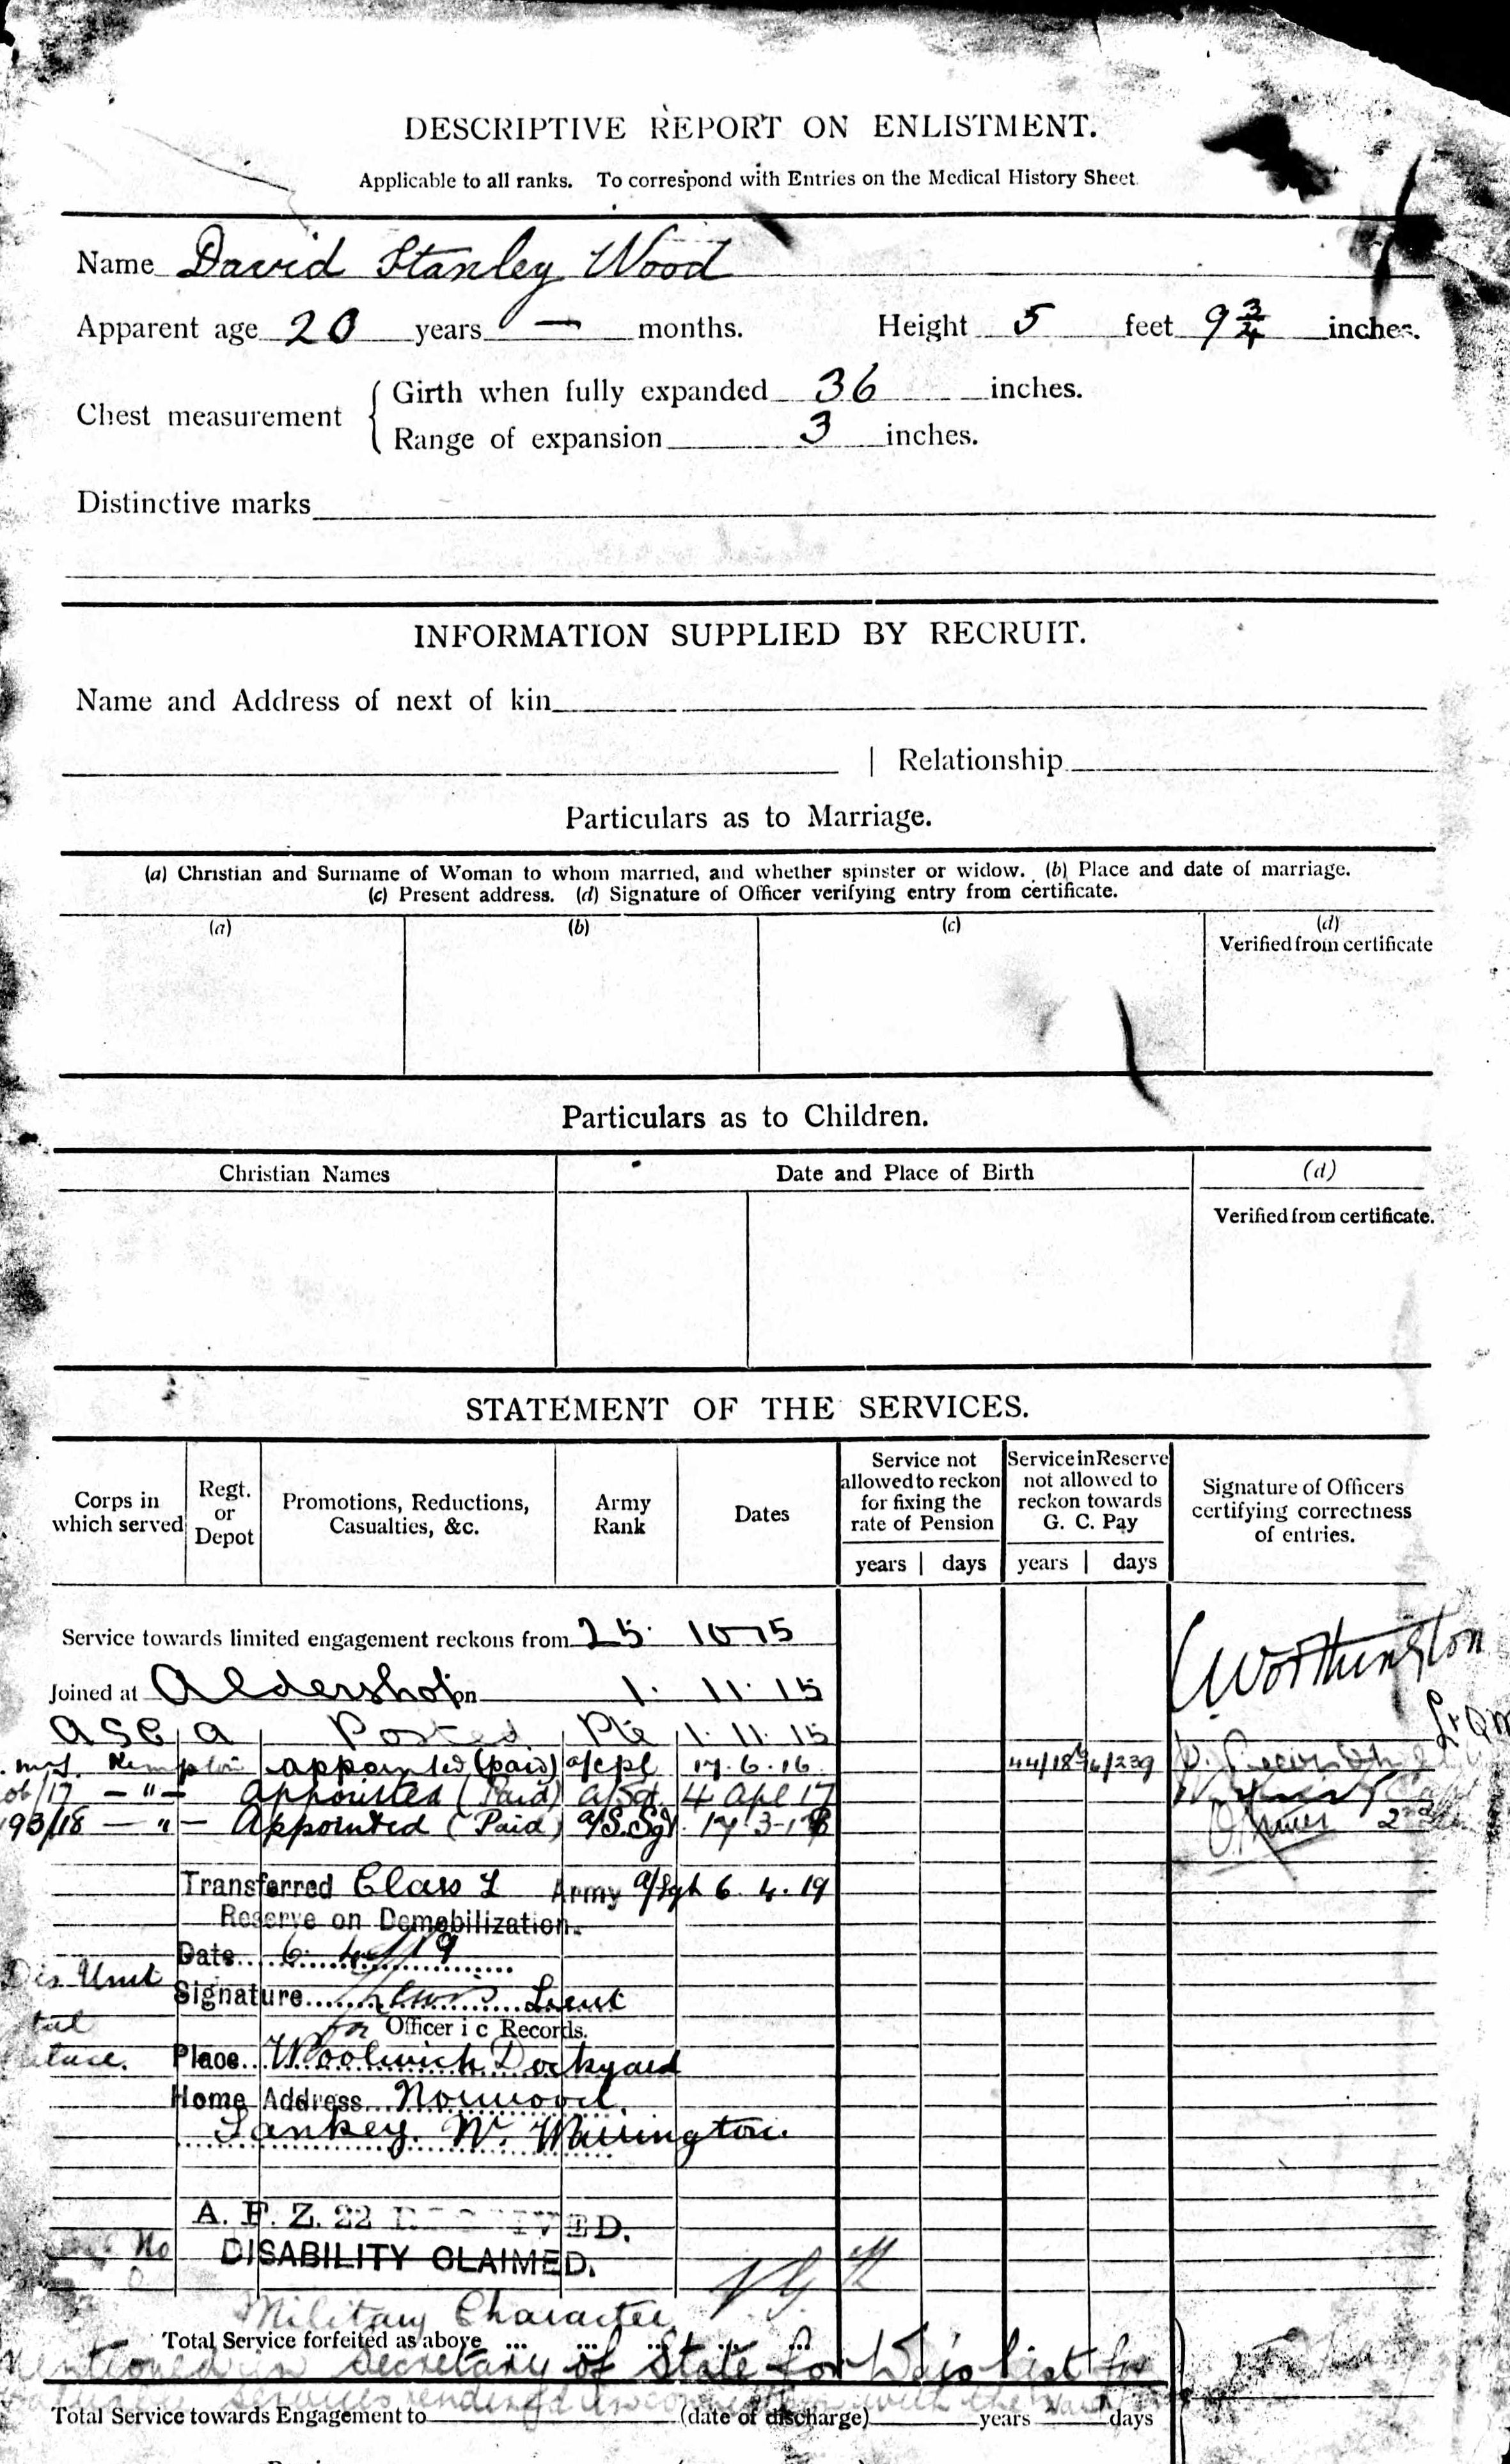 DESCRIPTIVE REPORT ON ENLISTMENT.
Applicable to all ranks. To correspond with Entries on the Medical History Sheet.
Name David Stanley Wood
Apparent age 20 years — months. Height 5 feet 9 3/4 inches.
Chest measurement { Girth when fully expanded 36 inches.
Range of expansion 3 inches.
Distinctive marks
INFORMATION SUPPLIED BY RECRUIT.
Name and Address of next of kin
| Relationship
Particulars as to Marriage.
(a) Christian and Surname of Woman to whom married, and whether spinster or widow. (b) Place and date of marriage.
(c) Present address. (d) Signature of Officer verifying entry from certificate.
(a) (b) (c) (d)
Verified from certificate
Particulars as to Children.
Christian Names Date and Place of Birth (d)
Verified from certificate.
STATEMENT OF THE SERVICES.
Corps in which served
Regt. or Depot
Promotions, Reductions, Casualties, &c.
Army Rank
Dates
Service not allowed to reckon for fixing the rate of Pension
Service in Reserve not allowed to reckon towards G. C. Pay
Signature of Officers certifying correctness of entries.
years | days years | days
Service towards limited engagement reckons from 25. 10 15
Joined at Aldershot on 1. 11. 15
Worthington
A S C A Posted Pte 1. 11. 15
appointed (paid) a/cpl 17. 6. 16
/17 — " — Appointed (Paid) a/Sgt. 4 Apl 17
93/18 — " — Appointed (Paid) a/S.Sgt. 17-3-18
Transferred Class Z Army a/Sgt 6. 4. 19
Reserve on Demobilization.
Date 6. 4. 19
Dis Unit
Signature Lieut
for Officer i c Records.
Place Woolwich Dockyard
Home Address Norwood,
Sankey. N. Warrington.
A. F. Z. 22 RECEIVED.
No DISABILITY CLAIMED.
Military Character
Total Service forfeited as above ... ... ... ... ...
Mentioned in Secretary of State for War's list for
valuable services rendered in connection with the war
Total Service towards Engagement to (date of discharge) years days